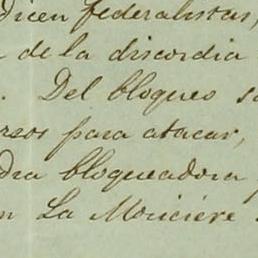 Dicen federalistas,
de la discordia
. Del bloqueo
para atacar,
bloqueadora
La Moriciere